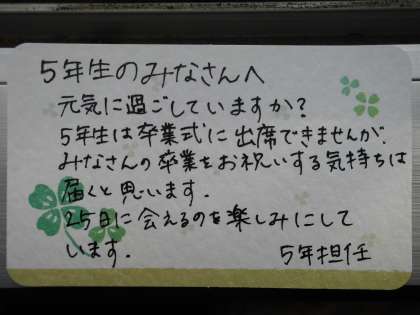 5年生のみなさんへ
元気に過ごしていますか?
5年生は卒業式に出席できませんが、
みなさんの卒業をお祝いする気持ちは
届くと思います.
25日に会えるのを楽しみにして
います.
5年担任